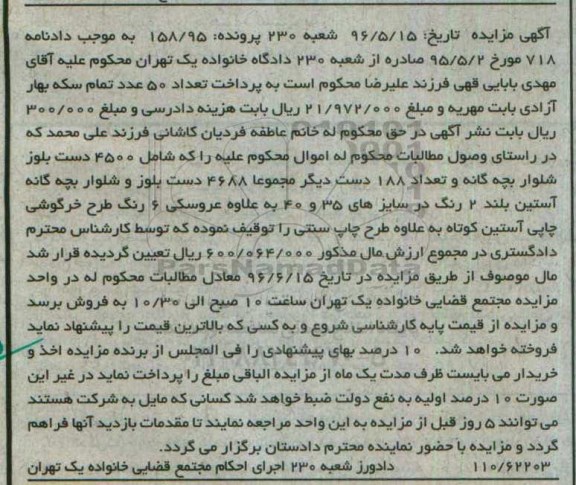 آگهی مزایده تاریخ: ۹۶/۵/۱۵ شعبه ۲۳۰ پرونده: ۱۵۸/۹۵ به موجب دادنامه
۷۱۸ مورخ ۹۵/۵/۲ صادره از شعبه ۲۳۰ دادگاه خانواده یک تهران محکوم علیه آقای
مهدی بابایی قهی فرزند علیرضا محکوم است به پرداخت تعداد ۵۰ عدد تمام سکه بهار
آزادی بابت مهریه و مبلغ ۲۱/۹۷۲/۰۰۰ ریال بابت هزینه دادرسی و مبلغ ۳۰۰/۰۰۰
ریال بابت نشر آگهی در حق محکوم له خانم عاطفه فردیان کاشانی فرزند علی محمد که
در راستای وصول مطالبات محکوم له اموال محکوم علیه را که شامل ۴۵۰۰ دست بلوز
شلوار بچه گانه و تعداد ۱۸۸ دست دیگر مجموعا ۴۶۸۸ دست بلوز و شلوار بچه گانه
آستین بلند ۲ رنگ در سایز های ۳۵ و ۴۰ به علاوه عروسکی ۶ رنگ طرح خرگوشی
چاپی آستین کوتاه به علاوه طرح چاپ سنتی را توقیف نموده که توسط کارشناس محترم
دادگستری در مجموع ارزش مال مذکور ۶۰۰/۰۶۴/۰۰۰ ریال تعیین گردیده قرار شد
مال موصوف از طریق مزایده در تاریخ ۹۶/۶/۱۵ معادل مطالبات محکوم له در واحد
مزایده مجتمع قضایی خانواده یک تهران ساعت ۱۰ صبح الی ۱۰/۳۰ به فروش برسد
و مزایده از قیمت پایه کارشناسی شروع و به کسی که بالاترین قیمت را پیشنهاد نماید
فروخته خواهد شد. ۱۰ درصد بهای پیشنهادی را فی المجلس از برنده مزایده اخذ و
خریدار می بایست ظرف مدت یک ماه از مزایده الباقی مبلغ را پرداخت نماید در غیر این
صورت ۱۰ درصد اولیه به نفع دولت ضبط خواهد شد کسانی که مایل به شرکت هستند
می توانند ۵ روز قبل از مزایده به این واحد مراجعه نمایند تا مقدمات بازدید آنها فراهم
گردد و مزایده با حضور نماینده محترم دادستان برگزار می گردد.
۱۱۰/۶۲۲۰۳ دادورز شعبه ۲۳۰ اجرای احکام مجتمع قضایی خانواده یک تهران